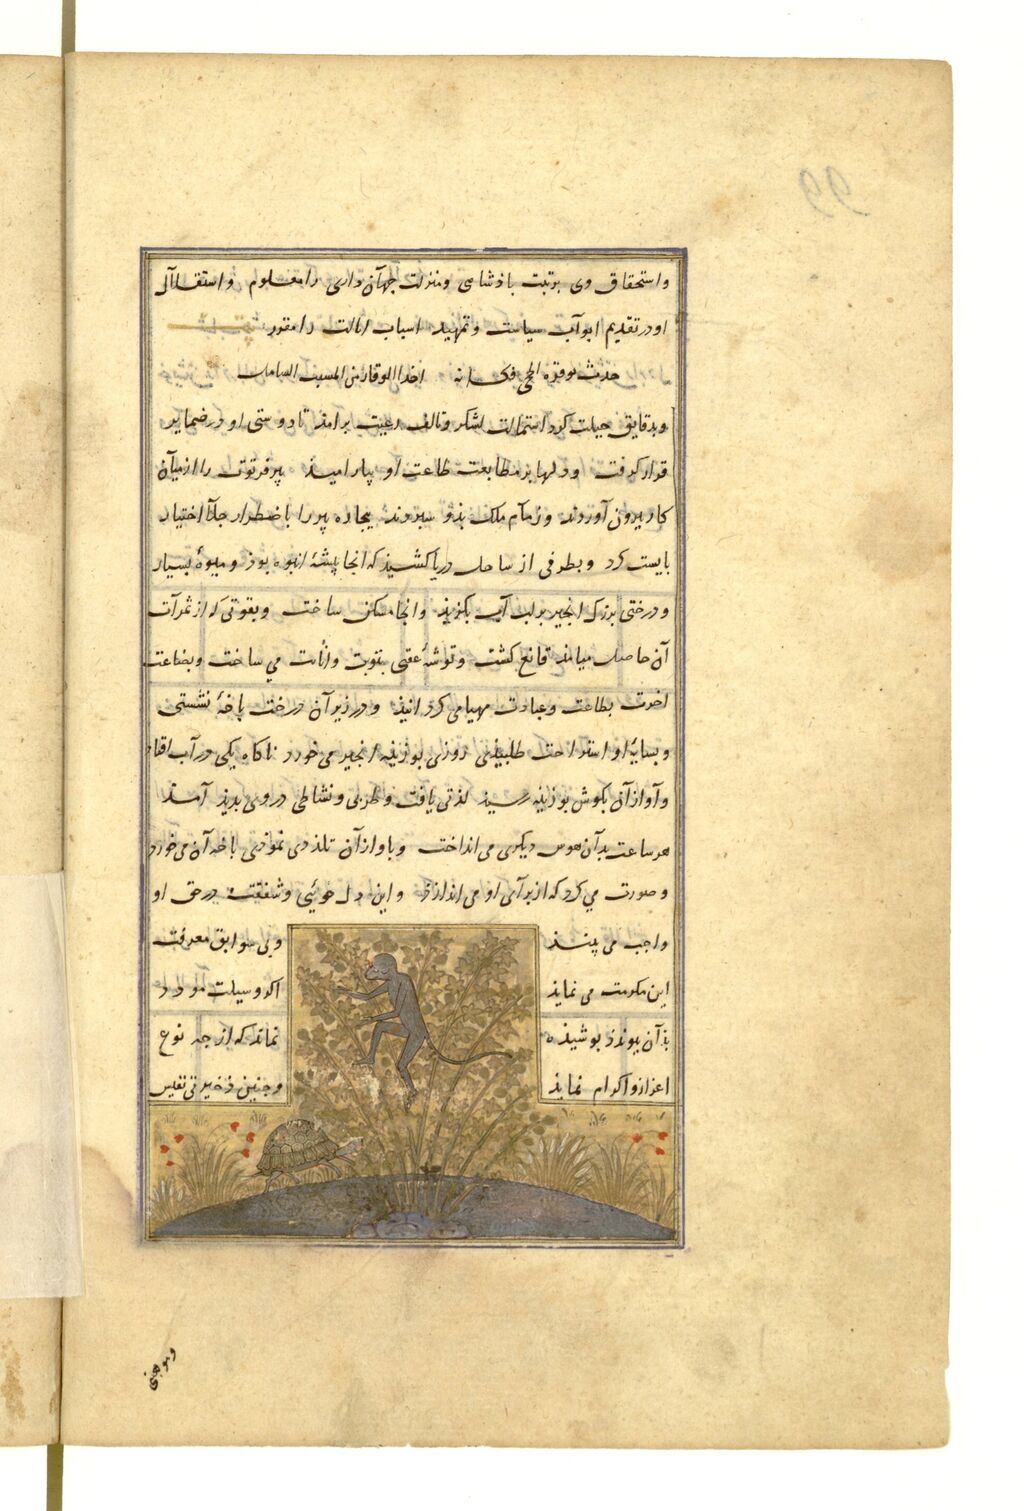 واستحقاق وی برتبت باذشاهی ومنزلت جهان داری را معلوم واستقلال
او در تقدیم ابواب سیاست وتمهید اسباب ایالت را مقرر
حدث توقره الحجی فکانه اخذ الوقار من المشیب
وبدقایق حیلت کرد استمالت لشکر وتالف رعیت برامذ تا دوستی او در ضمایر
قرار کرفت ودلها بر مطابعت طاعت او بیارامیذ پیر فرتوت را از میان
کار بیرون آوردند وزمام ملک بذو سپردند بیجاره پیر را باضطرار جلا اختیار
بایست کرد وبطرفی از ساحل دریا کشیذ که انجا بیشهٔ انبوه بوذ ومیوهٔ بسیار
ودرختی بزرک انجیر بر لب آب بکزیذ وانجا مسکن ساخت وبقوتی که از ثمرات
آن حاصل میامذ قانع کشت وتوشهٔ عقبی بتوبت وانابت می ساخت وبضاعت
اخرت بطاعت وعبادت مهیا می کردانیذ ودر زیر آن درخت باخهٔ نشستی
وبسایهٔ او استراحت طلبیذی روزی بوزینه انجیر می خورد ناکاه یکی در آب افتاد
وآواز آن بکوش بوزینه رسیذ لذتی یافت وطربی ونشاطی در وی بدیذ آمذ
هر ساعت بدآن هوس دیکری می انداخت وباواز آن تلذذی نموذی باخه آن می خورد
وصورت می کرد که از برآی او می اندازذ واین دل جوئی وشفقت در حق او
واجب می بینذ وبی سوابق معرفت
این مکرمت می نمایذ اکر وسیلت مودت
بذآن پیوندذ پوشیذه نماند که از جه نوع
اعزاز واکرام نمایذ وجنین ذخیرتی نفیس
99